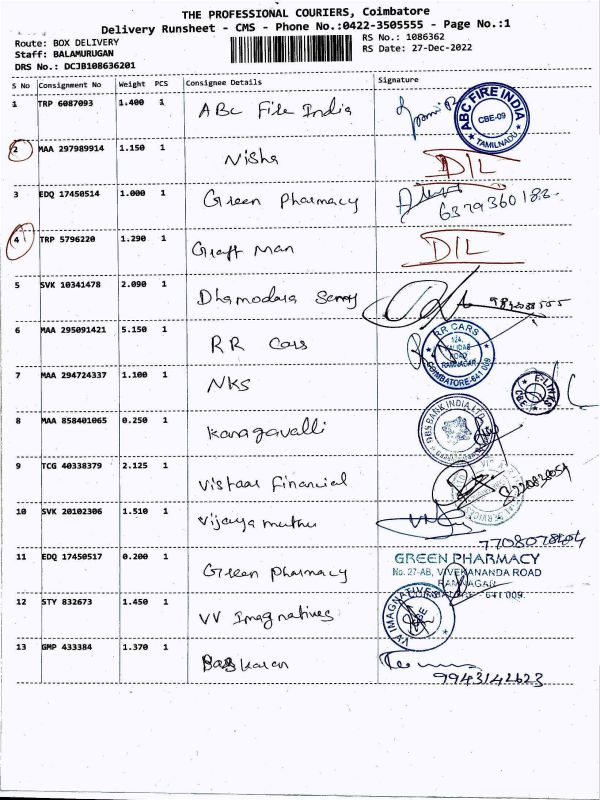 THE PROFESSIONAL COURIERS, Coimbatore
Delivery Runsheet - CMS - Phone No.:0422-3505555 - Page No.:1
Route: BOX DELIVERY
RS No.: 1086362
Staff: BALAMURUGAN
RS Date: 27-Dec-2022
DRS No.: DCJB108636201
S No Consignment No Weight PCS Consignee Details Signature
1 TRP 6087093 1.400 1 ABC Fire India
ABC FIRE INDIA CBE-09 TAMILNADU
2 MAA 297989914 1.150 1 Nisha DIL
3 EDQ 17450514 1.000 1 Green Pharmacy
6379360183
4 TRP 5796220 1.290 1 Graft Man DIL
5 SVK 10341478 2.090 1 Dhamodara Samy
6 MAA 295091421 5.150 1 RR Cars
RR CARS 124, KALIDAS ROAD RAMNAGAR COIMBATORE-641 009
7 MAA 294724337 1.100 1 NKS
E-LINKS CBE
8 MAA 858401065 0.250 1 Kanagavalli
DBS BANK INDIA LTD
9 TCG 40338379 2.125 1 Vistaar Financial
8220830054
10 SVK 20102306 1.510 1 Vijaya muthu
7708078404
11 EDQ 17450517 0.200 1 Green Pharmacy
GREEN PHARMACY
No. 27-AB, VIVEKANANDA ROAD
RAMNAGAR
COIMBATORE - 641 009.
12 STY 832673 1.450 1 VV Imagnatives
VV IMAGNATIVES CBE
13 GMP 433384 1.370 1 Baskaran
9943142623